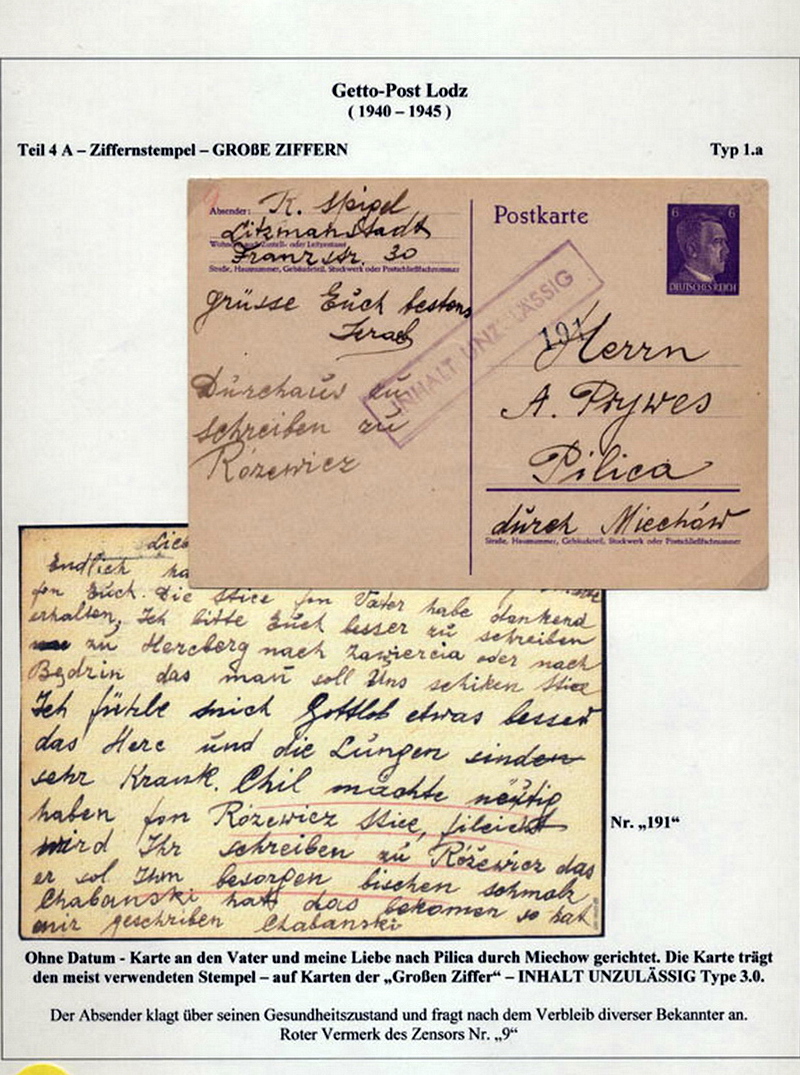 Getto-Post Lodz
( 1940 – 1945 )
Teil 4 A – Ziffernstempel – GROßE ZIFFERN
Typ 1.a
Absender: R. Spigel
Litzmanstadt
Wohnort, auch Zustell- oder Leitpostamt
Franz str. 30
Straße, Hausnummer, Gebäudeteil, Stockwerk oder Postschließfachnummer
grüsse Euch bestens
Durchaus zu
schreiben zu
Rózewicz
Postkarte
6 6
DEUTSCHES REICH
INHALT UNZULÄSSIG
191
Herrn
A. Prywes
Pilica
durch Miechów
Straße, Hausnummer, Gebäudeteil, Stockwerk oder Postschließfachnummer
Endlich
fon Euch. Die Stice fon Vater habe dankend
erhalten. Ich bitte Euch besser zu schreiben
zu Herzberg nach Zawiercia oder nach
Będzin das man soll Uns schiken Stice
Ich fühle mich Gottlob etwas besser
das Herc und die Lungen sinden
sehr Krank. Chil mächte neutig
haben fon Rózewicz Stice, fileicht
wird Ihr schreiben zu Rózewicz das
er sol Ihm besorgen bischen schmalz
Chabanski hatt das bekomen so hat
mir geschriben Chabanski
Nr. „191“
Ohne Datum - Karte an den Vater und meine Liebe nach Pilica durch Miechow gerichtet. Die Karte trägt
den meist verwendeten Stempel – auf Karten der „Großen Ziffer“ – INHALT UNZULÄSSIG Type 3.0.
Der Absender klagt über seinen Gesundheitszustand und fragt nach dem Verbleib diverser Bekannter an.
Roter Vermerk des Zensors Nr. „9“